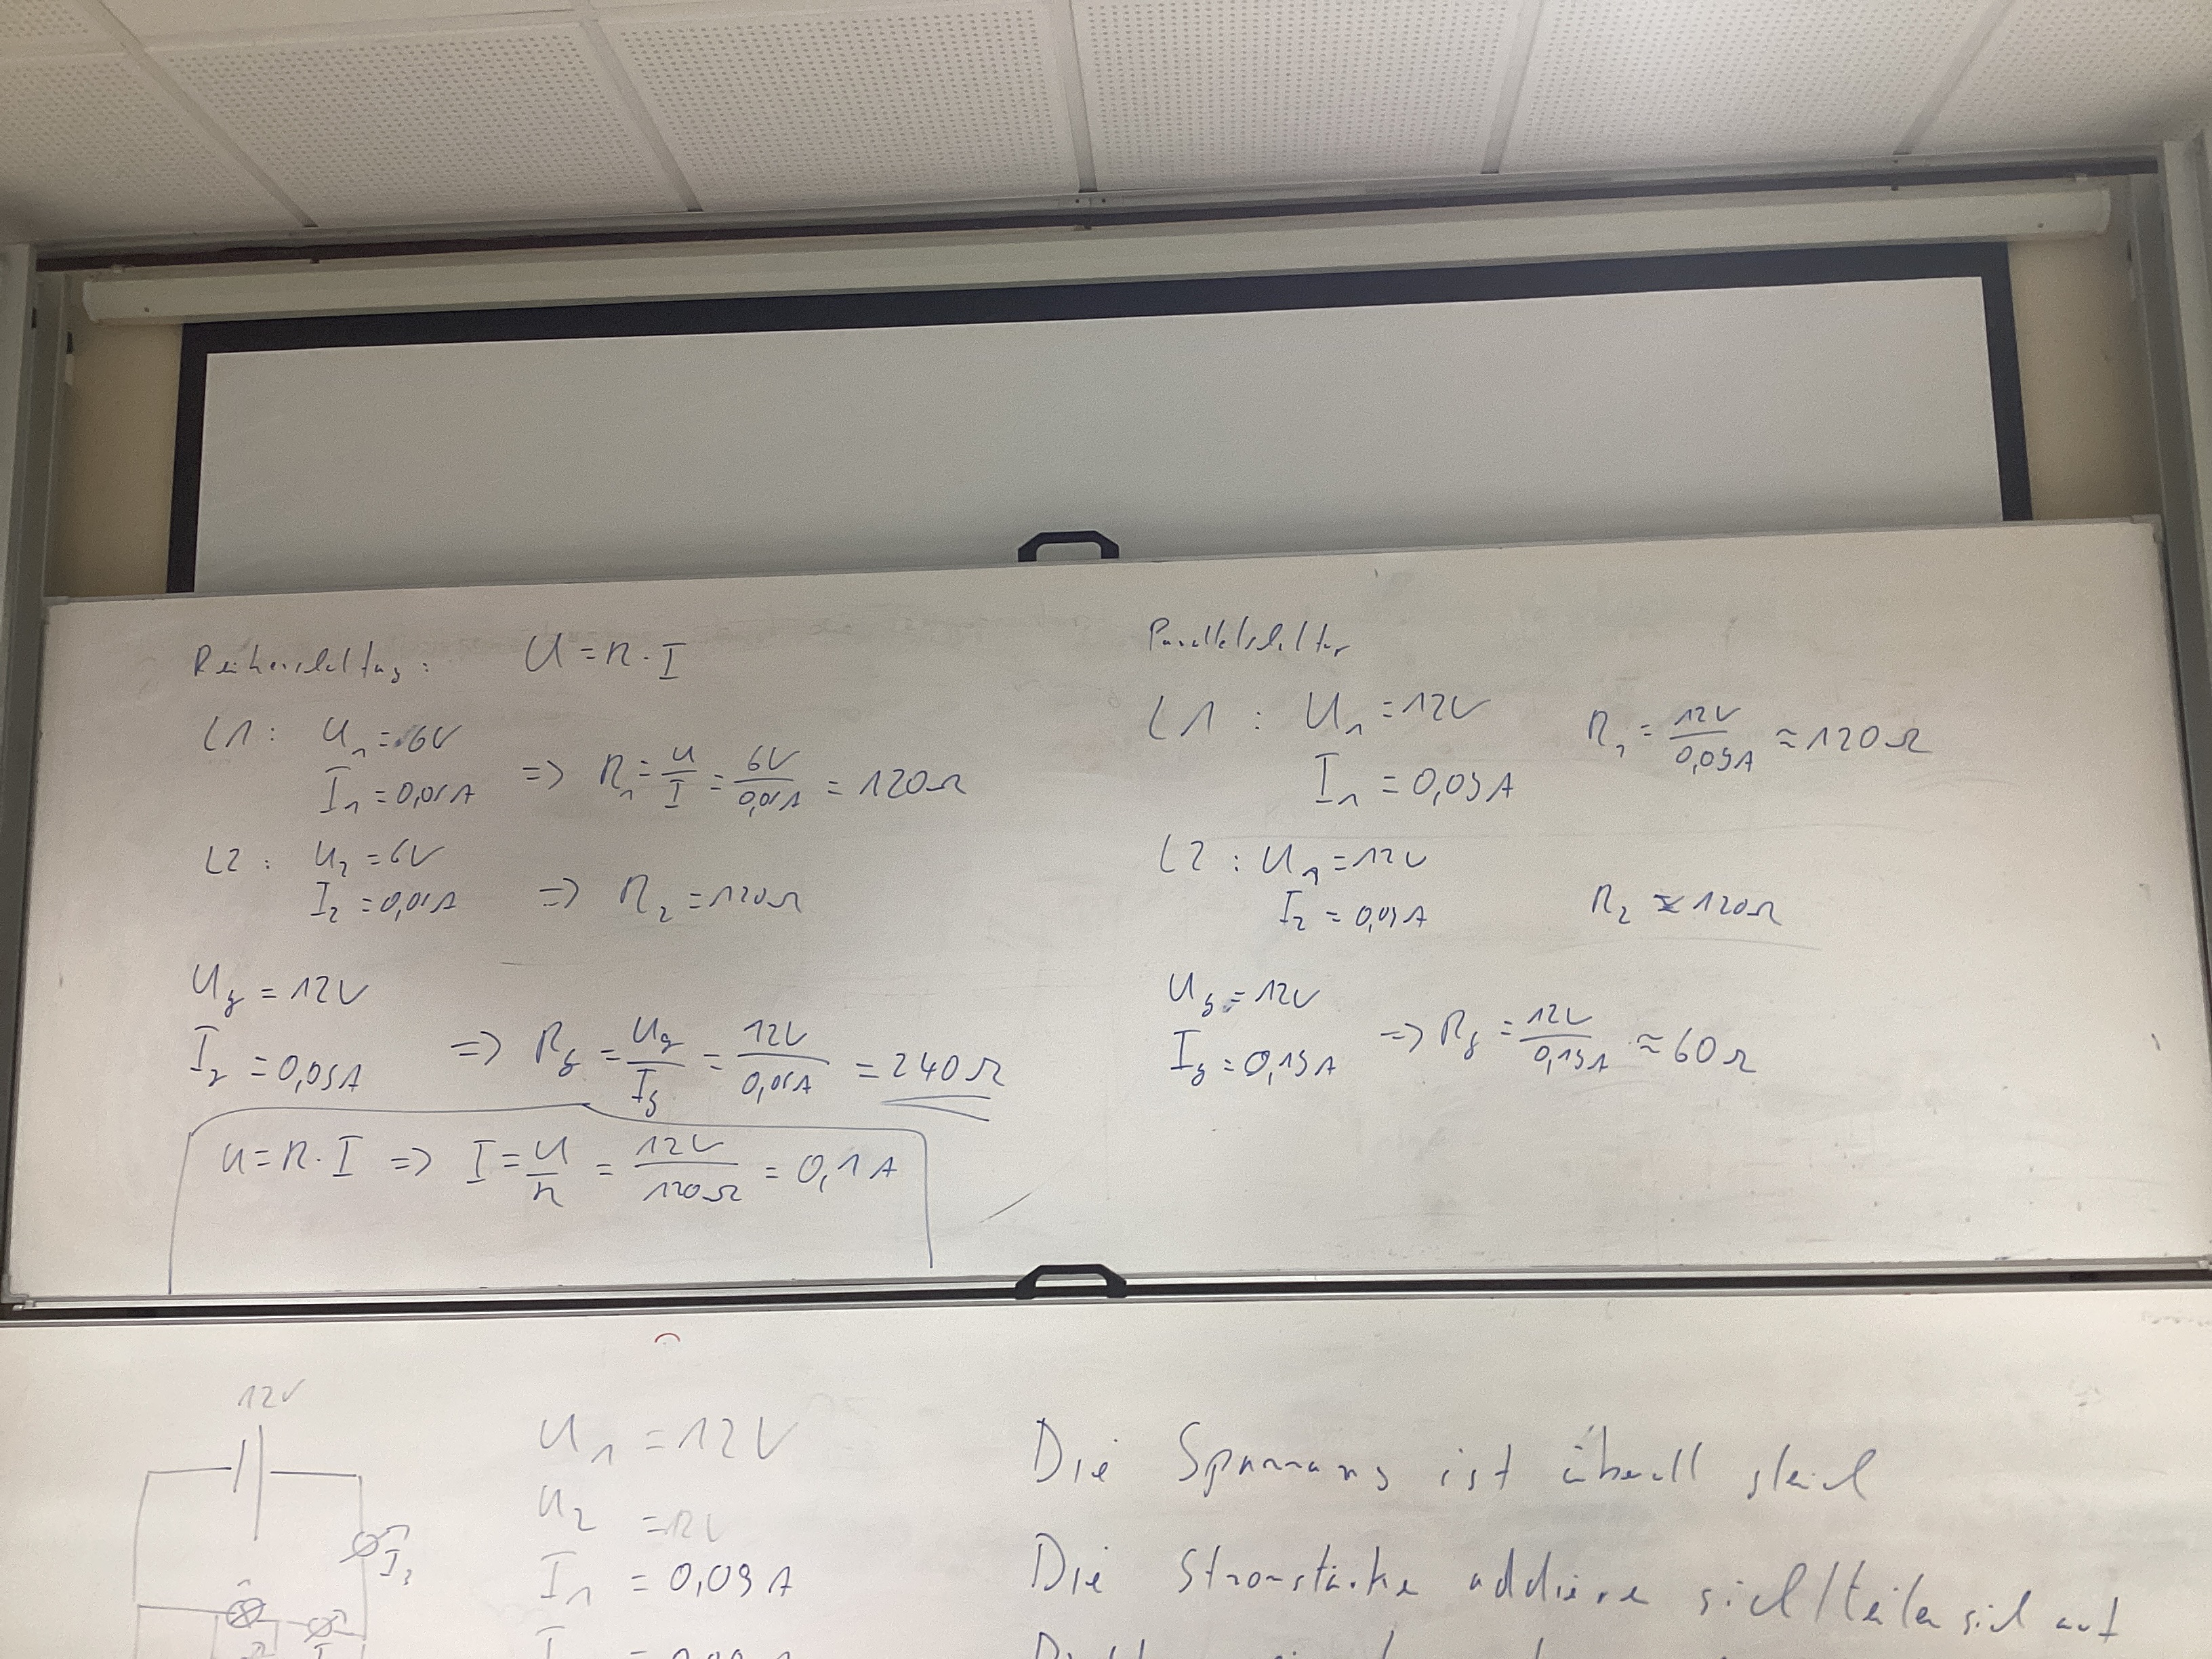 Reihenschaltung: U = R · I
L1: U₁ = 6V
I₁ = 0,05A => R₁ = U/I = 6V/0,05A = 120Ω
L2: U₂ = 6V
I₂ = 0,05A => R₂ = 120Ω
Ug = 12V
Ig = 0,05A => Rg = Ug/Ig = 12V/0,05A = 240Ω
U = R · I => I = U/R = 12V/120Ω = 0,1A
Parallelschaltung
L1: U₁ = 12V
I₁ = 0,09A R₁ = 12V/0,09A ≈ 120Ω
L2: U₁ = 12V
I₂ = 0,09A R₂ ≈ 120Ω
Ug = 12V
Ig = 0,19A => Rg = 12V/0,19A ≈ 60Ω
12V
I₃
U₁ = 12V
U₂ = 12V
I₁ = 0,09A
Die Spannung ist überall gleich
Die Stromstärke addiere sich/teilen sich auf